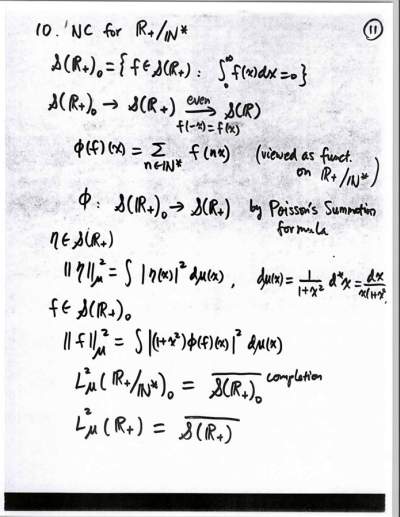 10. NC for ℝ₊/ℕ* ⑪
S(ℝ₊)₀ = {f ∈ S(ℝ₊) : ∫₀^∞ f(x)dx = 0}
S(ℝ₊)₀ → S(ℝ₊) →^{even}_{f(-x)=f(x)} S(ℝ)
ϕ(f)(x) = Σ_{n∈ℕ*} f(nx) (viewed as funct. on ℝ₊/ℕ*)
ϕ : S(ℝ₊)₀ → S(ℝ₊) by Poisson's Summation formula
η ∈ S(ℝ₊)
‖η‖²_μ = ∫ |η(x)|² dμ(x), dμ(x) = 1/(1+x²) d*x = dx/(x(1+x²
f ∈ S(ℝ₊)₀
‖f‖²_μ = ∫ |(1+x²)ϕ(f)(x)|² dμ(x)
L²_μ(ℝ₊/ℕ*)₀ = \overline{S(ℝ₊)₀} completion
L²_μ(ℝ₊) = \overline{S(ℝ₊)}